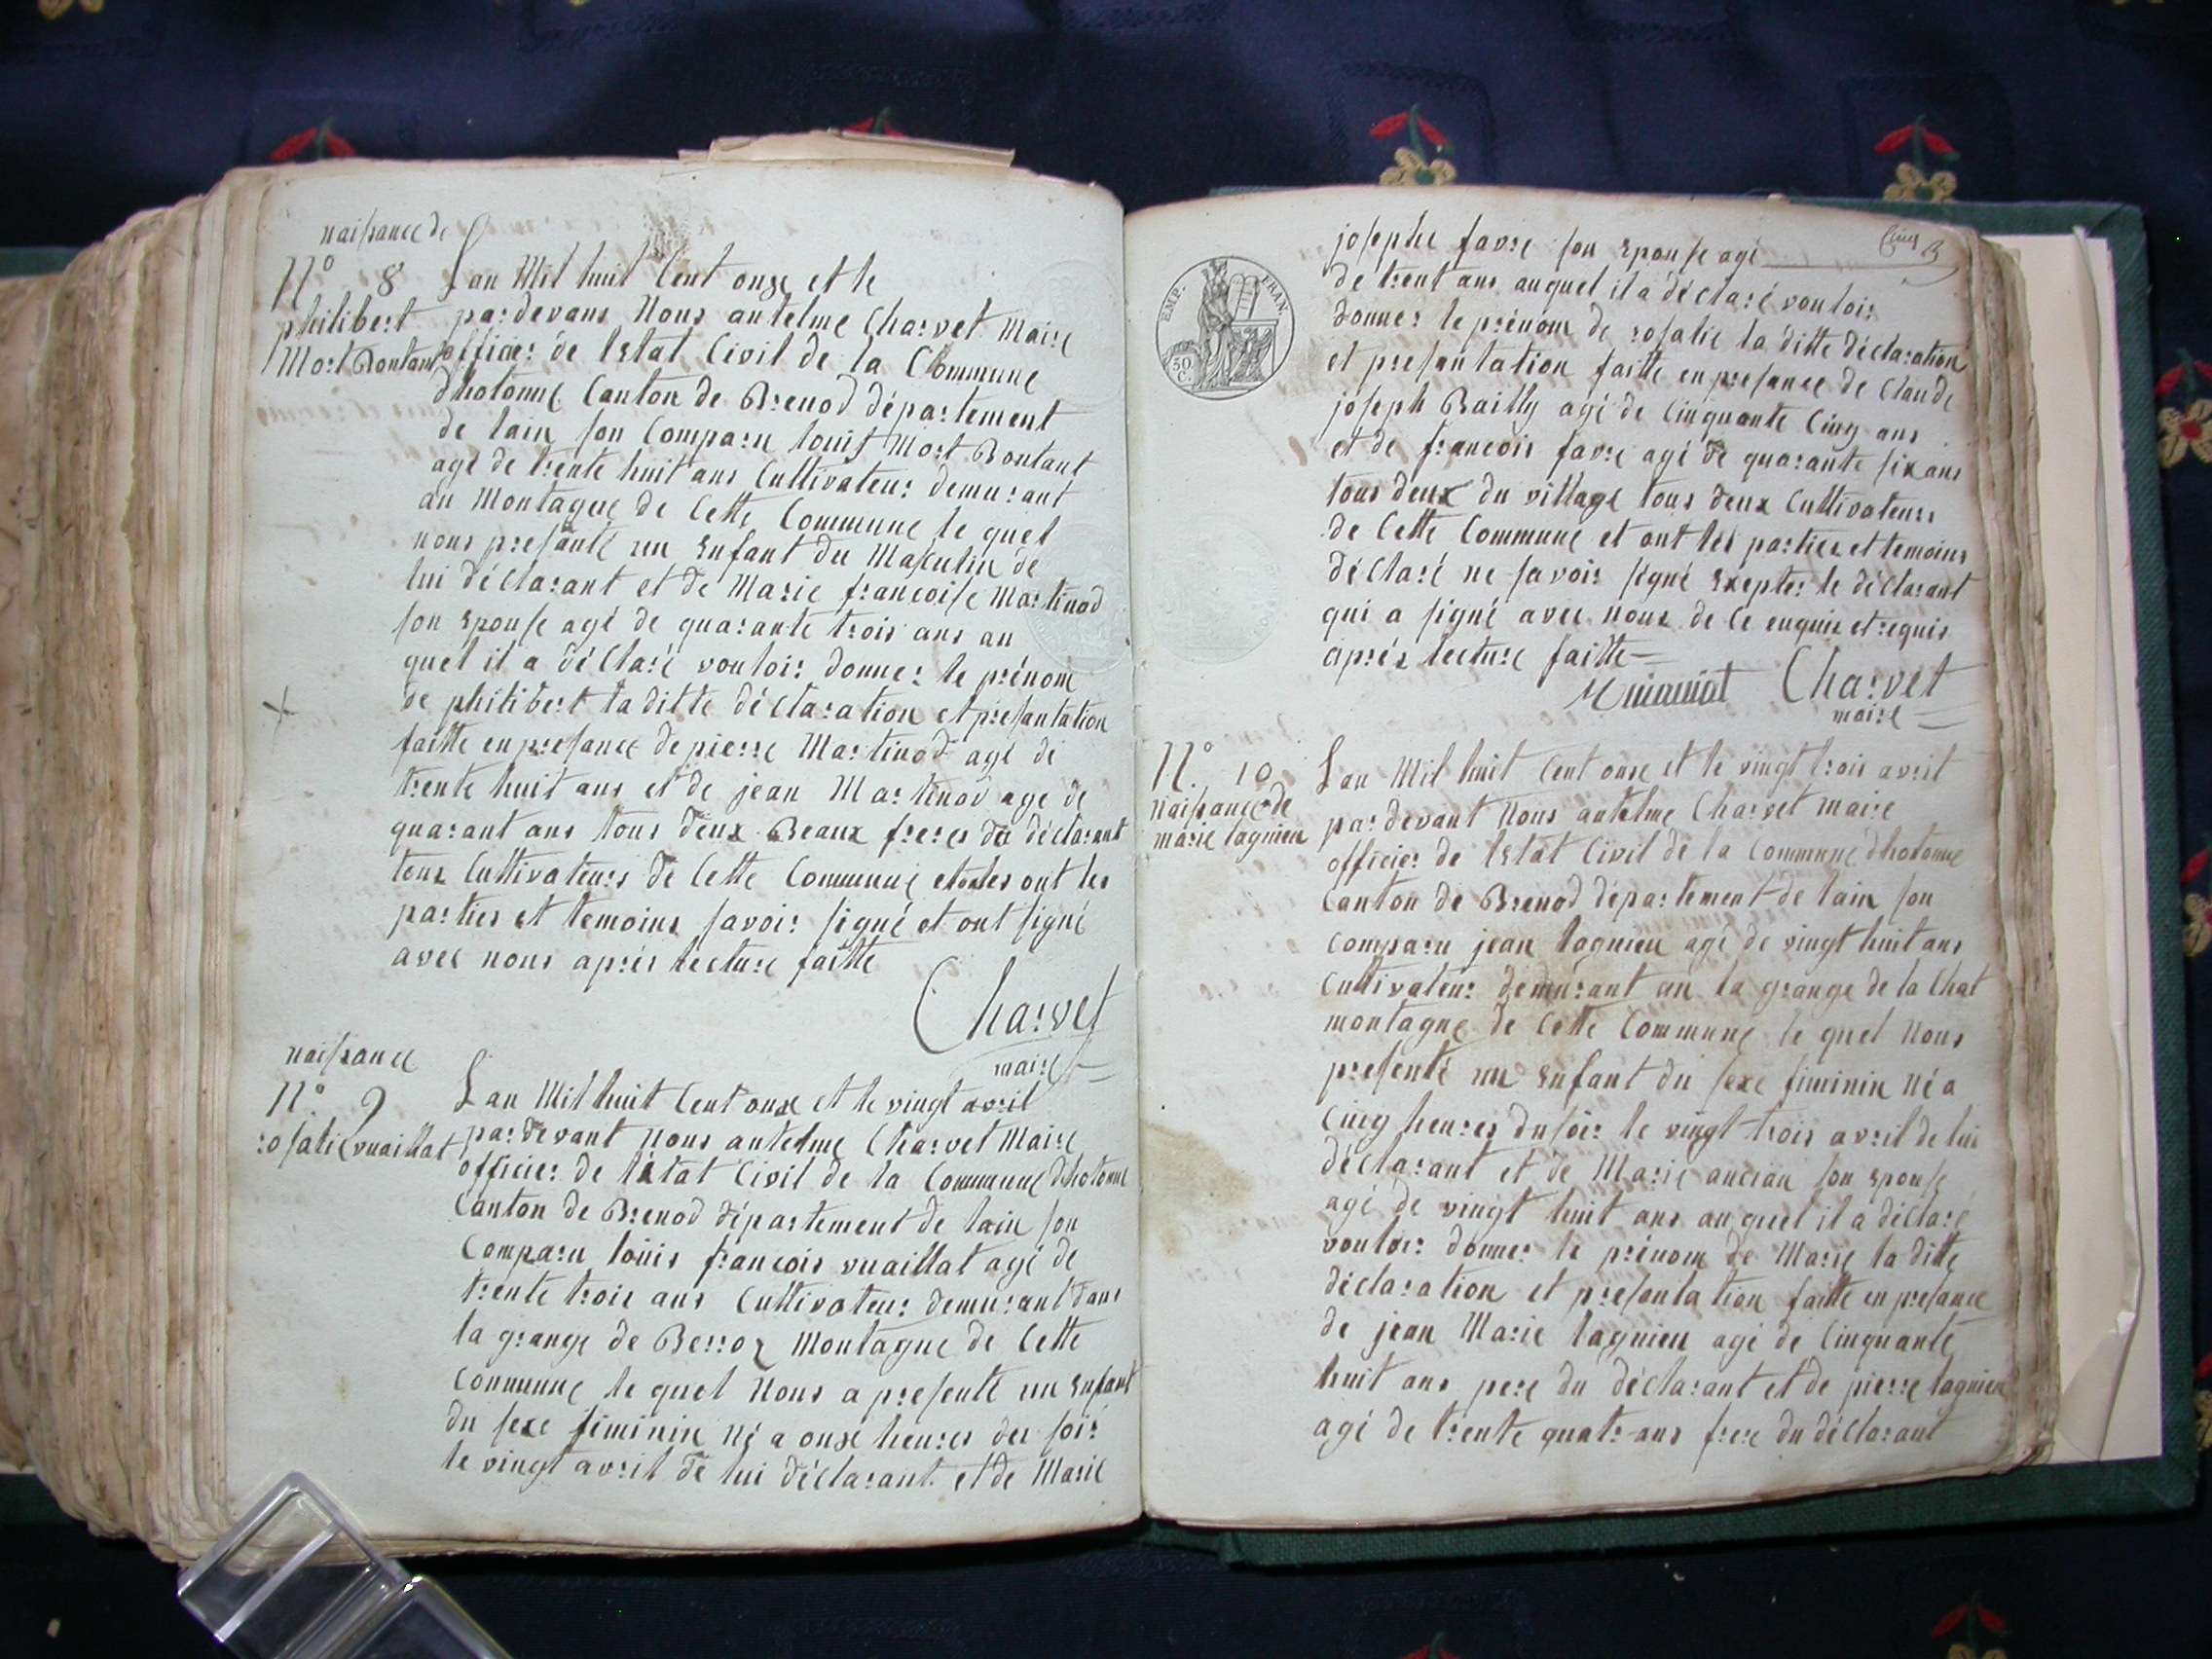 naissance de
N° 8
philibert
Mort Bontant
Lan Mil huit Cent onze et le
pardevans Nous antelme Charvet Maire
officier de lEtat Civil de la Commune
dhotonne Canton de Brenod département
de lain son Comparu louis Mort Bontant
agé de trente huit ans Cultivateur demurant
au Montagne de Cette Commune le quel
nous presanté un Enfant du Masculin de
lui déclarant et de Marie francoise Martinod
son Epouse agé de quarante trois ans au
quel il a déclaré vouloir donner le prénom
de philibert la ditte déclaration et presantation
faitte en presance de pierre Martinod agé de
trente huit ans et de jean Martinod age de
quarant ans tous deux Beaux freres du déclarant
tous Cultivateurs de Cette Commune et ont les
parties et temoins savoir signé et ont signé
avec nous aprés lecture faitte
Charvet
maire
naissance
N° 9
rosalie vuaillat
Lan Mil huit Cent onze et le vingt avril
pardevant nous antelme Charvet Maire
officier de létat Civil de la Commune dhotonne
Canton de Brenod département de lain son
Comparu louis francois vuaillat agé de
trente trois ans Cultivateur demurant dans
la grange de Berroz Montagne de Cette
Commune le quel Nous a presenté un Enfant
du sexe féminin Né a onze heures du soir
le vingt avril de lui déclarant et de Marie
EMP. FRAN.
50 C.
Cinq
josephe favre son Epouse agé
de trent ans auquel il a déclaré vouloir
donner le prénom de rosalie la ditte déclaration
et presantation faitte en presance de Claude
joseph Bailly agé de Cinquante Cinq ans
et de francois favre agé de quarante six ans
tous deux du village tous deux Cultivateurs
de Cette Commune et ont les parties et temoins
déclaré ne savoir signé Exepter le déclarant
qui a signé avec nous de Ce enquis et requis
aprés lecture faitte
Charvet
maire
N° 10
naissance de
marie lagnieu
Lan Mil huit Cent onze et le vingt trois avril
pardevant Nous antelme Charvet maire
officier de lEtat Civil de la Commune dhotonne
Canton de Brenod département de lain son
Comparu jean lagnieu agé de vingt huit ans
Cultivateur demurant an la grange de la Chat
montagne de Cette Commune le quel Nous
presenté un Enfant du sexe féminin Né a
Cinq heures du soir le vingt trois avril de lui
déclarant et de Marie ancian son Epouse
agé de vingt huit ans auquel il a déclaré
vouloir donner le prénom de Marie la ditte
déclaration et presentation faitte en presance
de jean Marie lagnieu agé de Cinquante
huit ans pere du déclarant et de pierre lagnieu
agé de trente quatr ans frere du déclarant